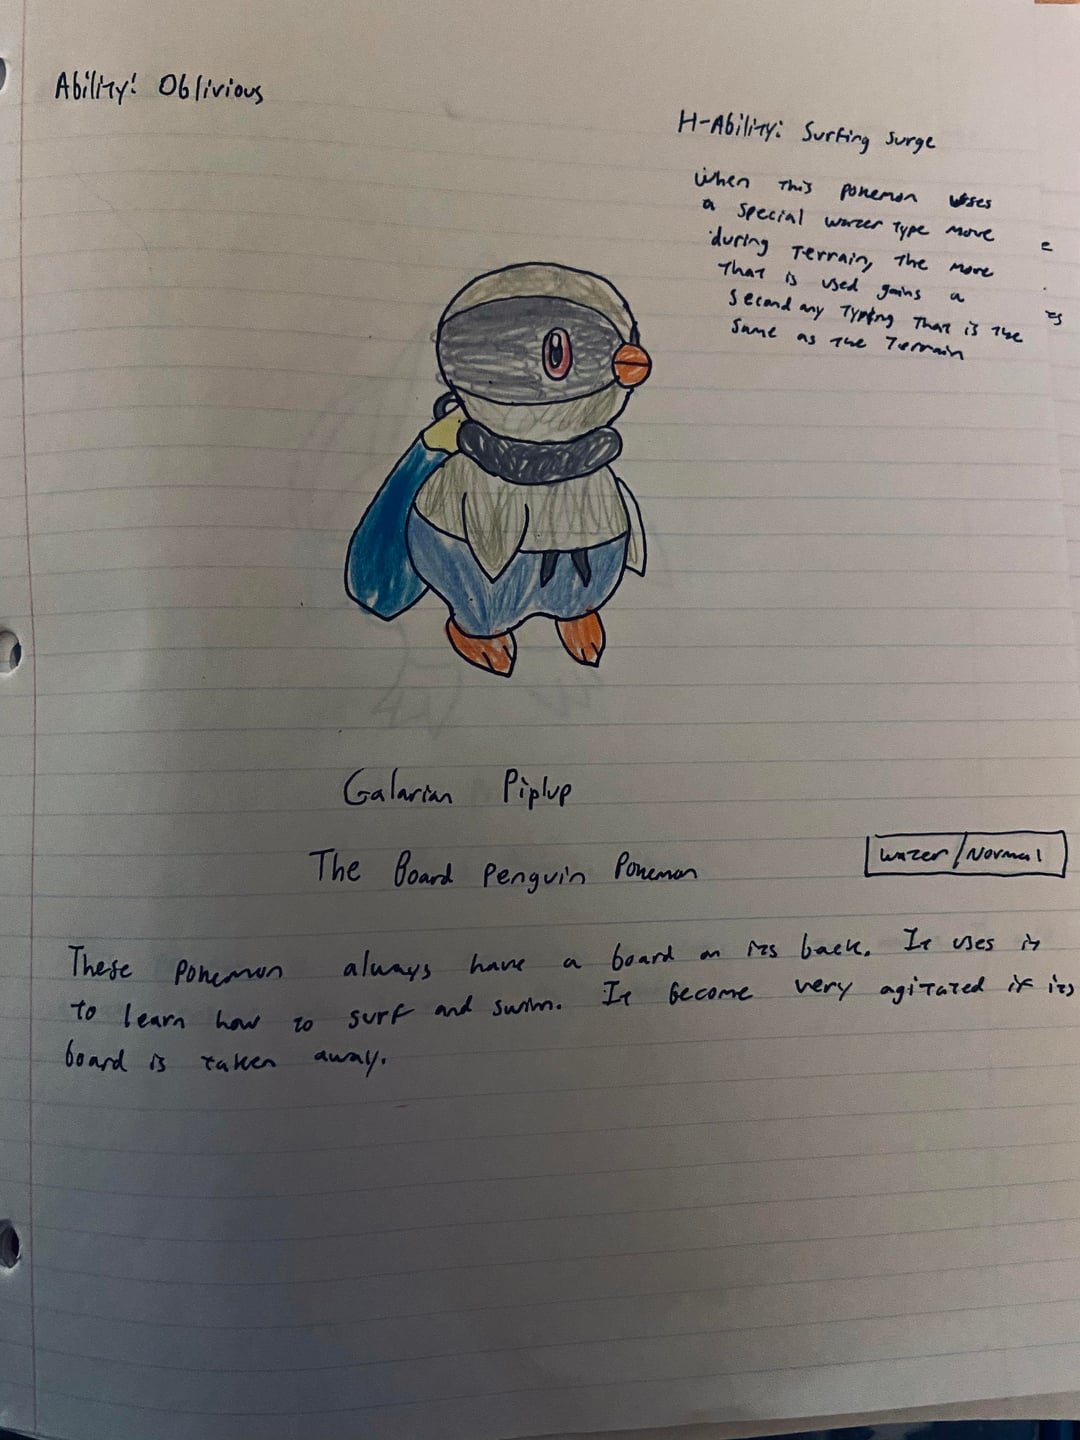 Ability: Oblivious
H-Ability: Surfing Surge
When this pokemon uses
a special water type move
during Terrain, the move
that is used gains a
secondary typing that is the
same as the Terrain
Galarian Piplup
The Board Penguin Pokemon
Water/Normal
These pokemon always have a board on its back. It uses it
to learn how to surf and swim. It become very agitated if its
board is taken away.